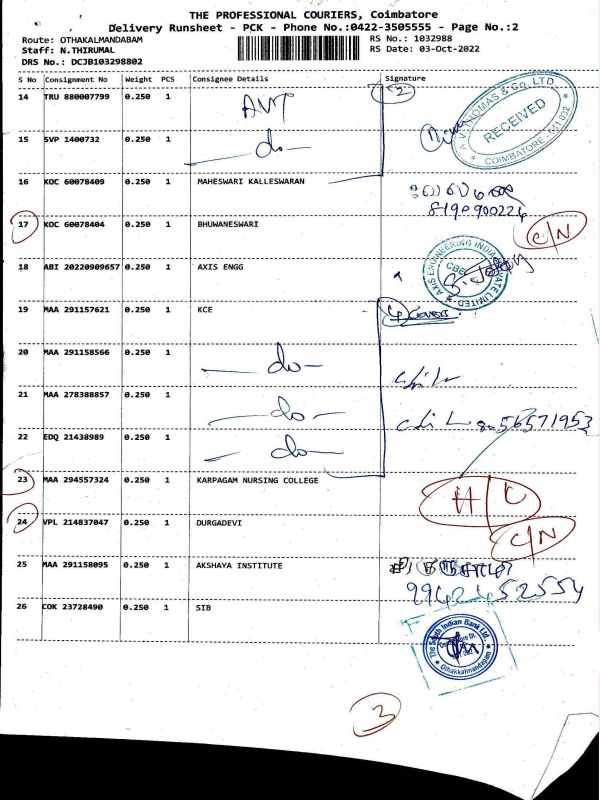 THE PROFESSIONAL COURIERS, Coimbatore
Delivery Runsheet - PCK - Phone No.:0422-3505555 - Page No.:2
Route: OTHAKALMANDABAM RS No.: 1032988
Staff: N.THIRUMAL RS Date: 03-Oct-2022
DRS No.: DCJB103298802
S No Consignment No Weight PCS Consignee Details Signature
14 TRU 880007799 0.250 1 AVT 2
A.V. THOMAS & Co. LTD. RECEIVED COIMBATORE - 641 032
15 SVP 1400732 0.250 1 -do-
16 KOC 60078409 0.250 1 MAHESWARI KALLESWARAN
8190900224
17 KOC 60078404 0.250 1 BHUWANESWARI C/N
18 ABI 20220909657 0.250 1 AXIS ENGG
AXIS ENGINEERING INDIA PRIVATE LIMITED CBE
19 MAA 291157621 0.250 1 KCE 4 Covers
20 MAA 291158566 0.250 1 -do-
21 MAA 278388857 0.250 1 -do- 56571953
22 EDQ 21438989 0.250 1 -do-
23 MAA 294557324 0.250 1 KARPAGAM NURSING COLLEGE
24 VPL 214837047 0.250 1 DURGADEVI C/N
25 MAA 291158095 0.250 1 AKSHAYA INSTITUTE
9942452554
26 COK 23728490 0.250 1 SIB
The South Indian Bank Ltd. Othakkalmandapam
3